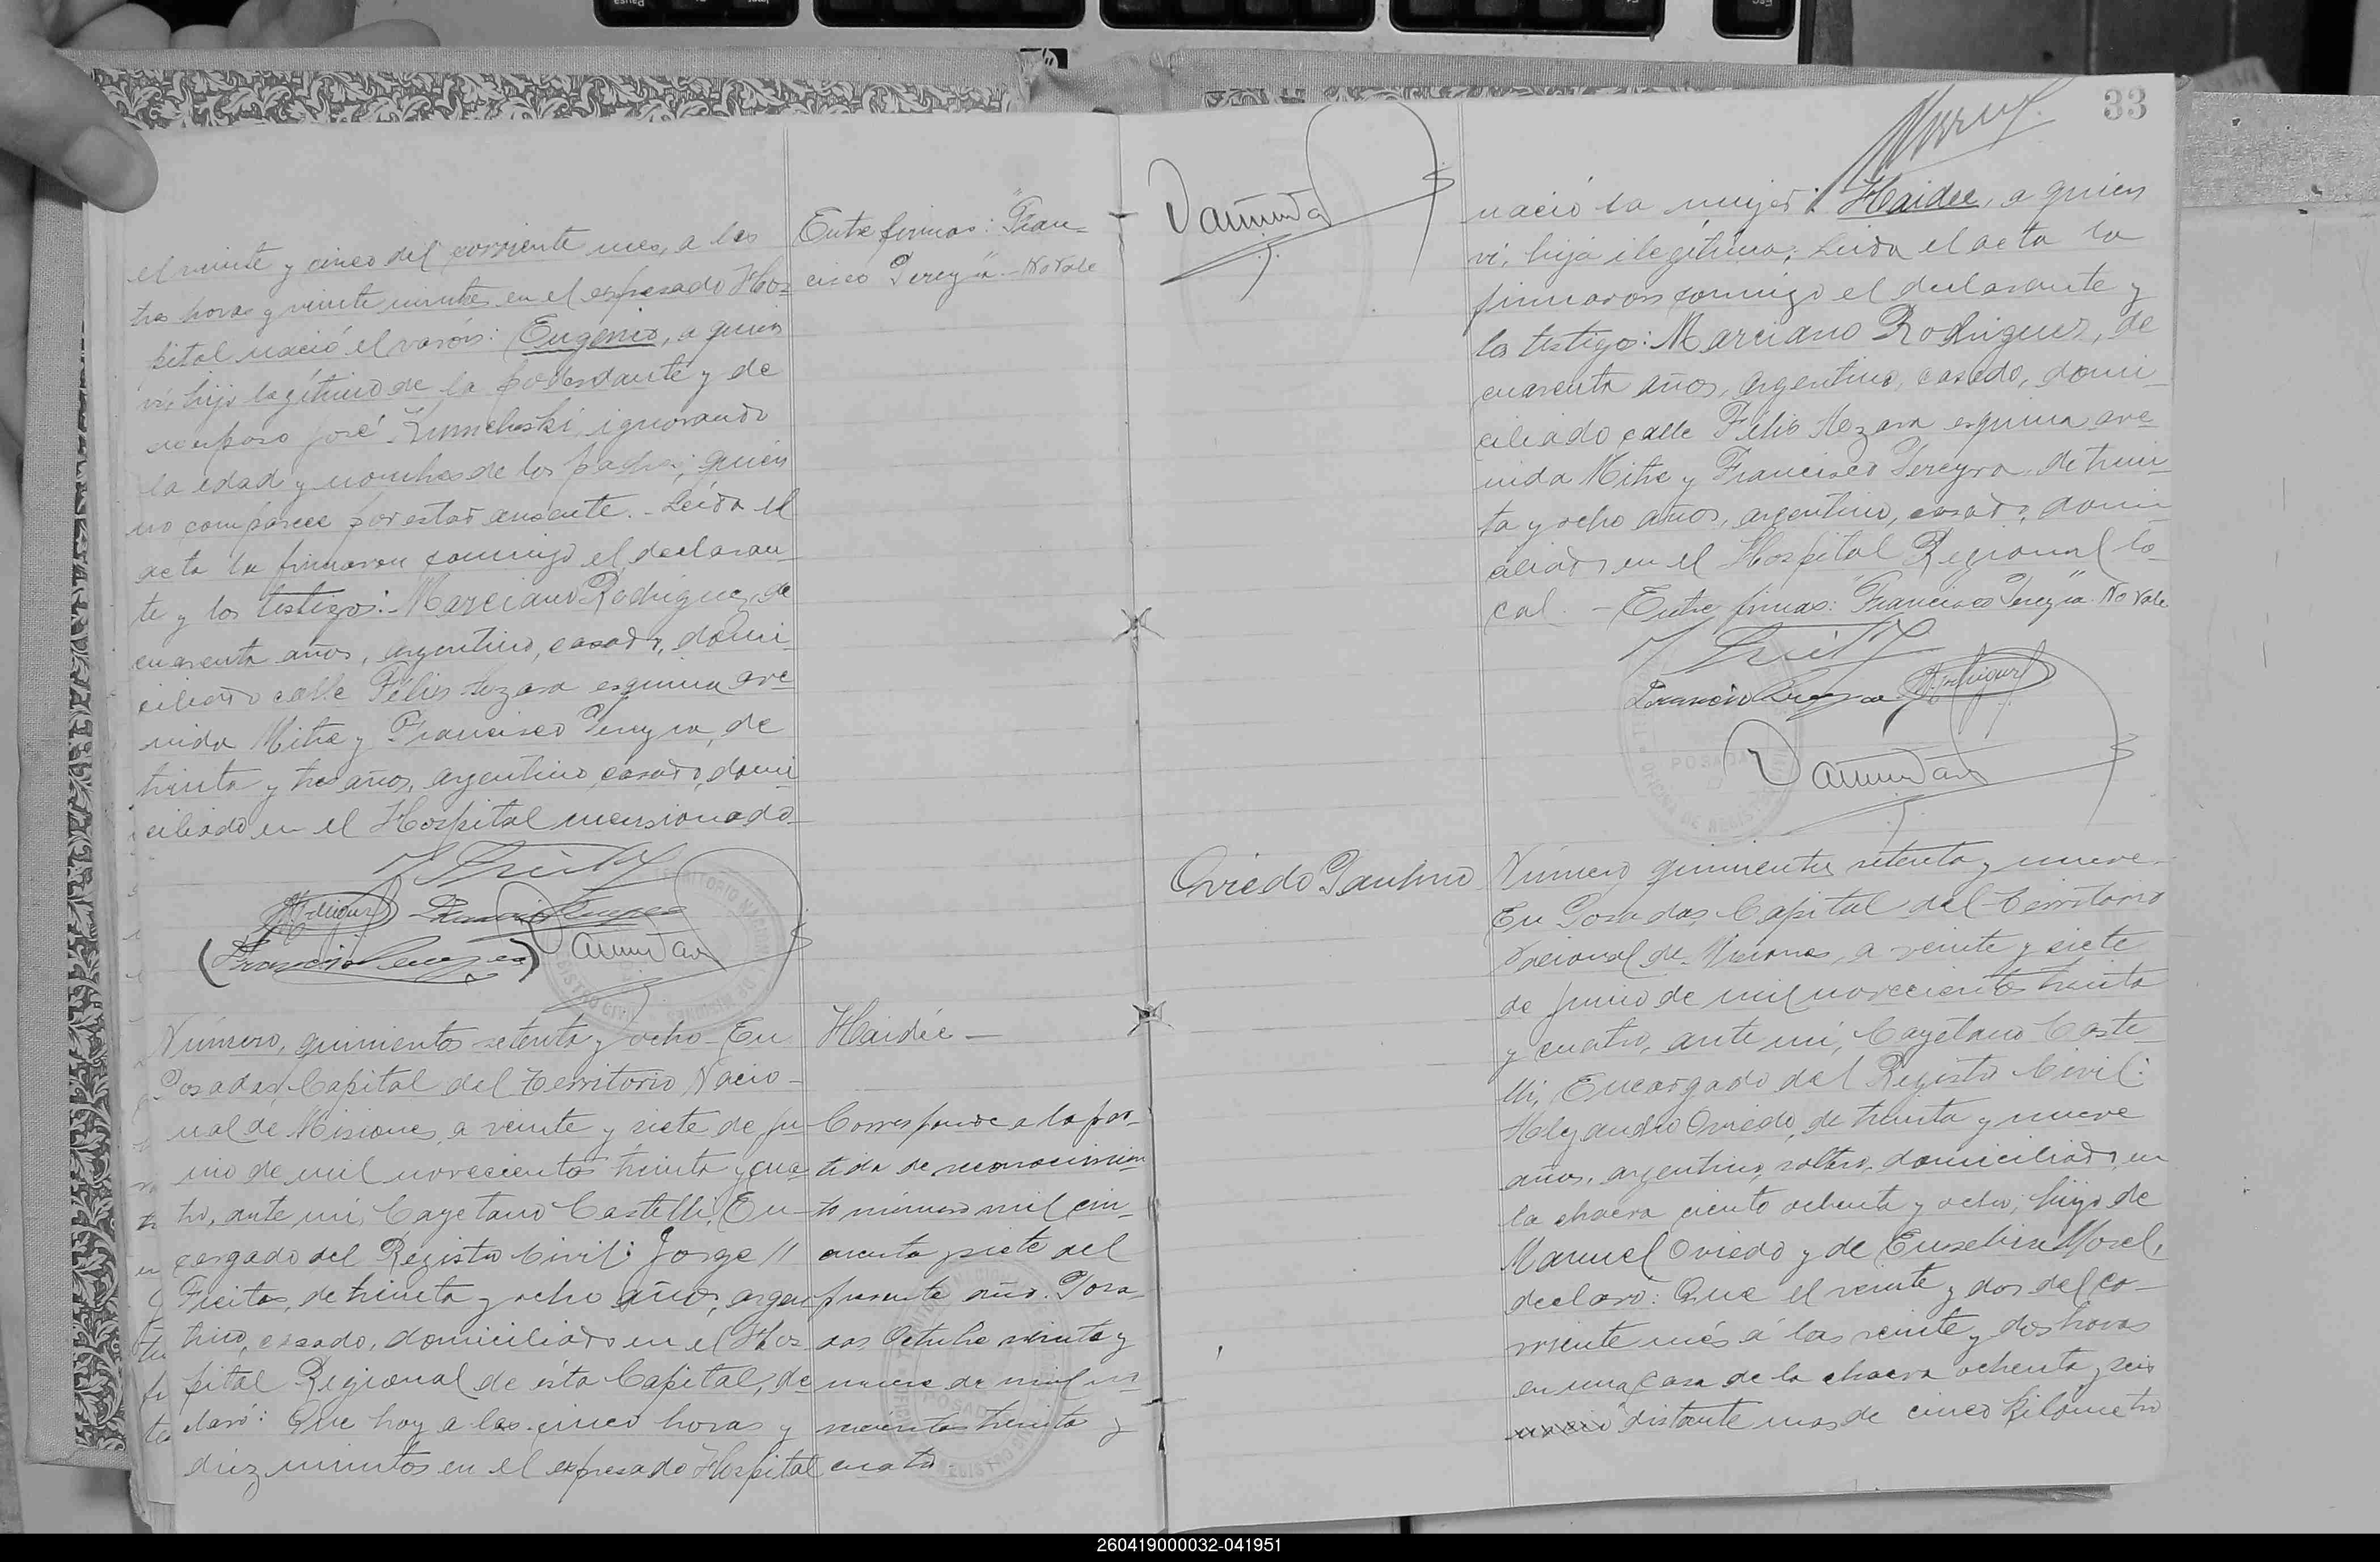 el veinte y cinco del corriente mes, a las
tres horas y veinte minutos en el expresado Hos-
pital nació el varón: Eugenio, a quien
vi, hijo legítimo de la y de
su esposo José ignorando
la edad y nombres de los padres; quien
no comparece por estar ausente. - Leída el
acta la firmaron conmigo el declaran-
te y los testigos: Marciano Rodriguez, de
cuarenta años, argentino, casado, domi-
ciliado calle Félix Azara esquina ave-
nida Mitre y Francisco Pereyra, de
treinta y tres años, argentino, casado, domi
ciliado en el Hospital mensionado-
Entre firmas: "Fran-
cisco Pereyra" - No vale
Número, quinientos setenta y ocho - En
Posadas, Capital del Territorio Nacio-
nal de Misiones, a veinte y siete de ju-
nio de mil novecientos treinta y cua-
tro, ante mi, Cayetano Castelli, En-
cargado del Registro Civil: Jorge //
Freites, de treinta y ocho años, argen
tino, casado, domiciliado en el Hos-
pital Regional de ésta Capital, de-
claró: Que hoy a las cinco horas y
diez minutos en el expresado Hospital
Haidée -
Corresponde a la par-
tida de reconocimien-
to número mil cin-
cuenta y siete del
presente año. Posa-
das Octubre veinte y
nueve de mil no-
vecientos treinta y
cuatro -
33
nació la mujer: Haidee, a quien
vi, hija ilegítima; Leída el acta la
firmaron conmigo el declarante y
los testigos: Marciano Rodriguez, de
cuarenta años, argentino, casado, domi-
ciliado calle Félix Azara esquina ave-
nida Mitre y Francisco Pereyra, de trein-
ta y ocho años, argentino, casado, domi-
ciliado en el Hospital Regional lo-
cal. - Entre firmas: "Francisco Pereyra" No vale
POSADAS
Oviedo Paulino
Número quinientos setenta y nueve-
En Posadas, Capital del Territorio
Nacional de Misiones, a veinte y siete
de junio de mil novecientos treinta
y cuatro, ante mi, Cayetano Caste-
lli, Encargado del Registro Civil:
Alejandro Oviedo, de treinta y nueve
años, argentino, soltero, domiciliado en
la chacra ciento ochenta y ocho; hijo de
Manuel Oviedo y de Eusebia Morel,
declaró: Que el veinte y dos del co-
rriente més á las veinte y dos horas
en una casa de la chacra ochenta y seis
distante mas de cinco kilometro
260419000032-041951